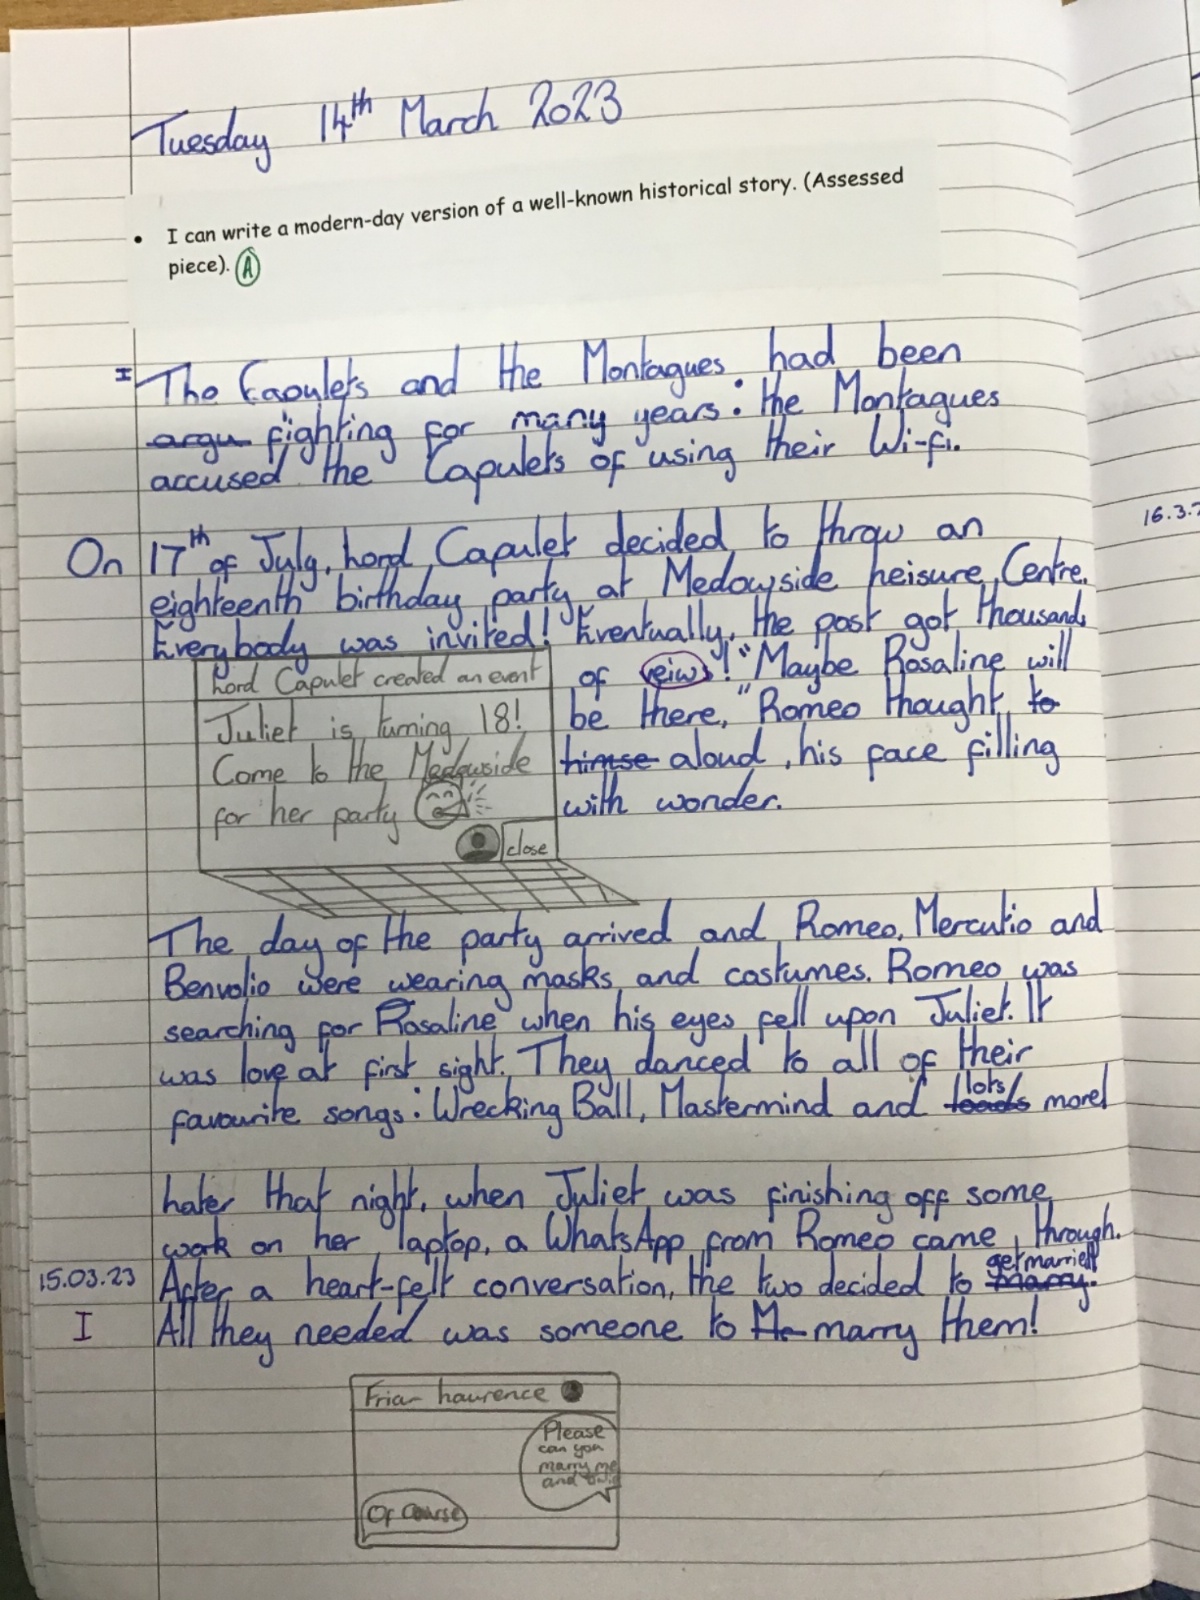 Tuesday 14th March 2023
• I can write a modern-day version of a well-known historical story. (Assessed
piece). A
I The Capulets and the Montagues had been
argu fighting for many years: the Montagues
accused the Capulets of using their Wi-fi.
16.3.2
On 17th of July, Lord Capulet decided to throw an
eighteenth birthday party at Medowside Leisure Centre.
Everybody was invited! Eventually, the post got thousands
of veiws! "Maybe Rosaline will
be there," Romeo thought to
himse aloud, his face filling
with wonder.
Lord Capulet created an event
Juliet is turning 18!
Come to the Medowside
for her party
close
The day of the party arrived and Romeo, Mercutio and
Benvolio were wearing masks and costumes. Romeo was
searching for Rosaline when his eyes fell upon Juliet. It
was love at first sight. They danced to all of their
favourite songs: Wrecking Ball, Mastermind and loads lots more!
Later that night, when Juliet was finishing off some
work on her laptop, a WhatsApp from Romeo came through.
15.03.23 After a heart-felt conversation, the two decided to marry. get married
I All they needed was someone to Ma marry them!
Friar Laurence
Please
can you
marry me
and
Of course